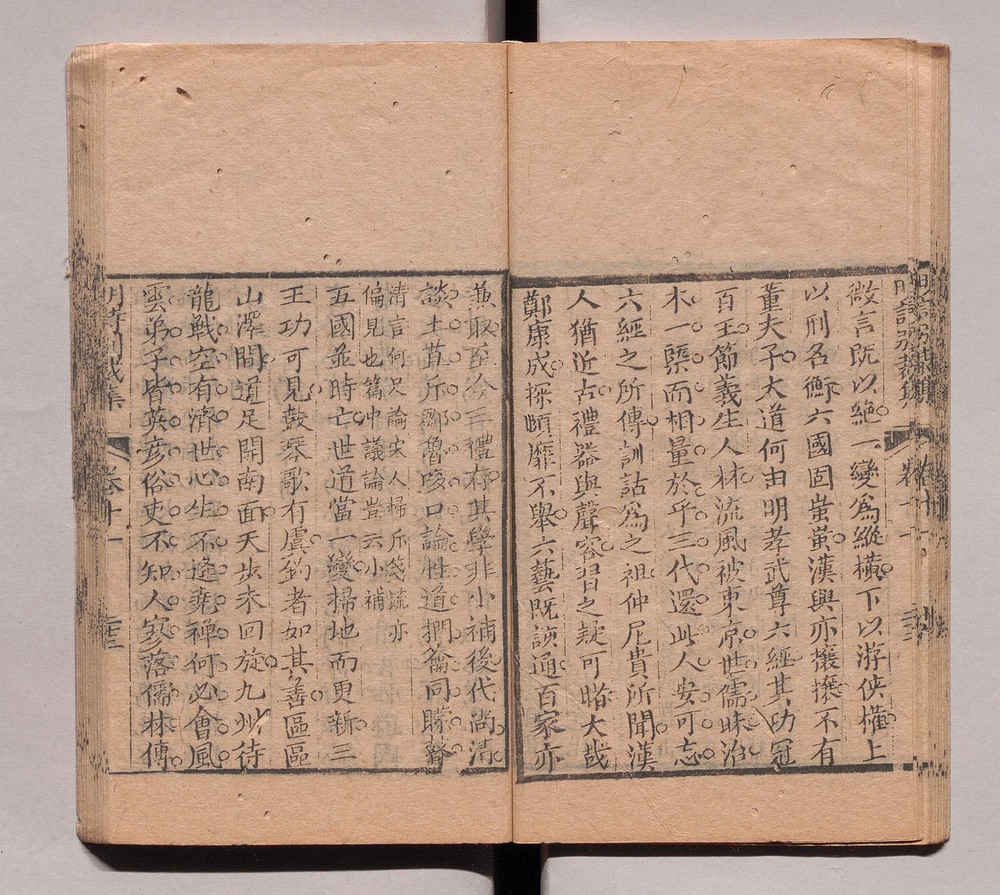 微言既以絶一變為縱横下以游侠權上
以刑名衡六國固蚩蚩漢興亦攘攘不有
董夫子大道何由明孝武尊六經其功冠
百王節義生人材流風被東京世儒昧治
本一槩而相量於乎三代還此人安可忘
六經之所傳訓詁為之祖仲尼貴所聞漢
人猶近古禮器與聲容習之疑可睹大哉
鄭康成探賾靡不舉六藝既該通百家亦
兼取至今三禮存其學非小補後代尚清
談土苴斥鄒魯孩口論性道捫籥同矇瞽
清言何足論宋人掃斥箋疏亦
偏見也篇中議論豈云小補
五國並時亡世道當一變掃地而更新三
王功可見鼓琴歌有虞釣者如其善區區
山澤間道足開南面天步未回旋九州待
龍戰空有濟世心生不逢堯禪何必會風
雲弟子皆英彦俗史不知人寥落儒林傳
明詩别裁集 卷十一